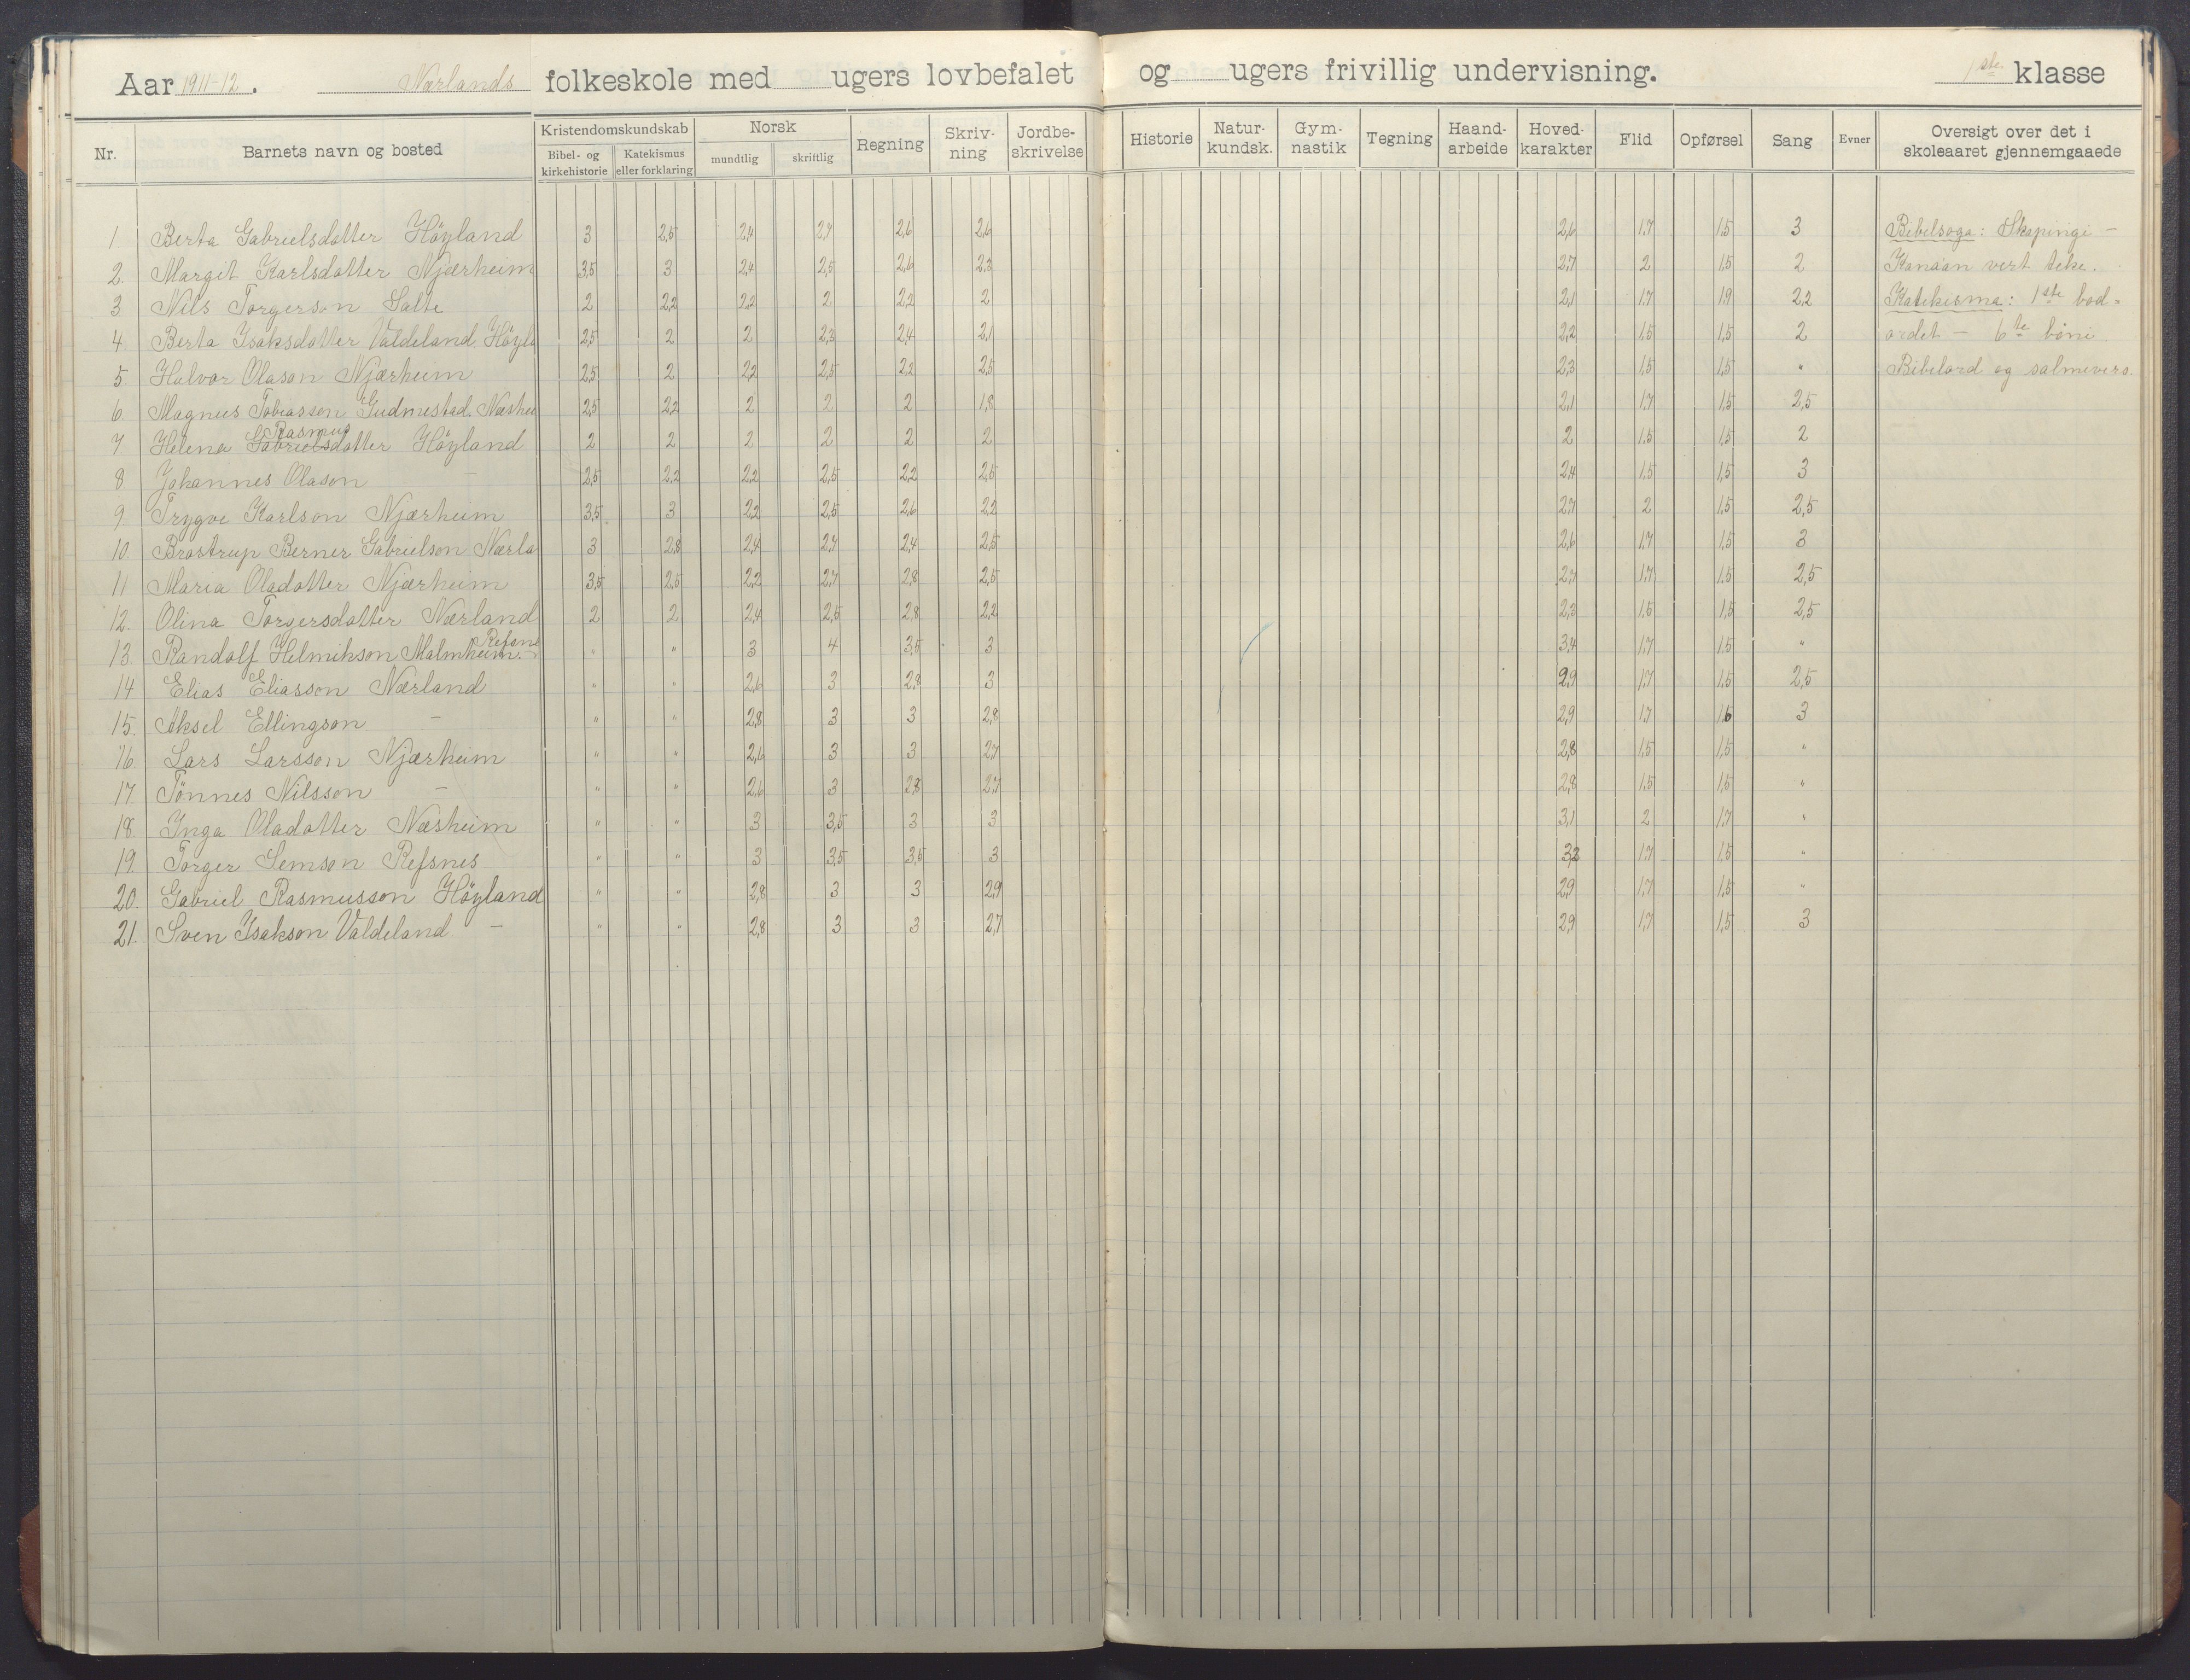 Aar 1911-12. Nærlands folkeskole med ugers lovbefalet og ugers frivillig undervisning. 1ste klasse
Nr. Barnets navn og bosted Kristendomskundskab Bibel- og kirkehistorie Katekismus eller forklaring Norsk mundtlig skriftlig Regning Skriv-ning Jordbe-skrivelse Historie Natur-kundsk. Gym-nastik Tegning Haand-arbeide Hoved-karakter Flid Opførsel Sang Evner Oversigt over det i skoleaaret gjennemgaaede
1 Berta Gabrielsdotter Höyland 3 2,5 2,4 2,7 2,6 2,6 2,6 1,7 1,5 3 Bibelsoga: Skapingi -
2. Margit Karlsdotter Njærheim 3,5 3 2,4 2,5 2,6 2,3 2,7 2 1,5 2 Kanáan vert teke.
3 Nils Torgerson Salte 2 2,2 2,2 2 2,2 2 2,1 1,7 1,9 2,2 Katekisma: 1ste bod=
4 Berta Isaksdotter Valdeland Höyl 2,5 2 2 2,3 2,4 2,1 2,2 1,5 1,5 2 ordet - 6te böni
5 Halvor Olason Njærheim 2,5 2 2,2 2,5 2,2 2,5 2,3 1,5 1,5 " Bibelord og salmevers.
6. Magnus Tobiasson Gudmestad. Næshei 2,5 2,2 2 2 2 1,8 2,1 1,7 1,5 2,5
7 Helena Gabrielsdotter Rasmus Höyland 2 2 2 2 2 2 2 1,5 1,5 2
8. Johannes Olason - 2,5 2,2 2,2 2,5 2,2 2,5 2,4 1,5 1,5 3
9 Trygve Karlson Njærheim 3,5 3 2,2 2,5 2,6 2,2 2,7 2 1,5 2,5
10. Brostrup Berner Gabrielson Nærla 3 2,8 2,4 2,7 2,4 2,5 2,6 1,7 1,5 3
11 Maria Oladotter Njærheim 3,5 2,5 2,2 2,7 2,8 2,5 2,7 1,7 1,5 2,5
12. Olina Torgersdotter Nærland 2 2 2,4 2,5 2,8 2,2 2,3 1,5 1,5 2,5
13. Randolf Helmikson Malmheim. Refsne " " 3 4 3,5 3 3,4 1,7 1,5 "
14 Elias Eliasson Nærland " " 2,6 3 2,8 3 2,9 1,7 1,5 2,5
15. Aksel Ellingson - " " 2,8 3 3 2,8 2,9 1,7 1,6 3
16. Lars Larsson Njærheim " " 2,6 3 3 2,7 2,8 1,5 1,5 "
17 Tönnes Nilsson - " " 2,6 3 2,8 2,7 2,8 1,5 1,5 "
18. Inga Oladotter Næsheim " " 3 3,5 3 3 3,1 2 1,7 "
19. Torger Semson Refsnes " " 3 3,5 3,5 3 3,2 1,7 1,5 "
20. Gabriel Rasmusson Höyland " " 2,8 3 3 2,9 2,9 1,7 1,5 "
21. Sven Isakson Valdeland - " " 2,8 3 3 2,7 2,9 1,7 1,5 3